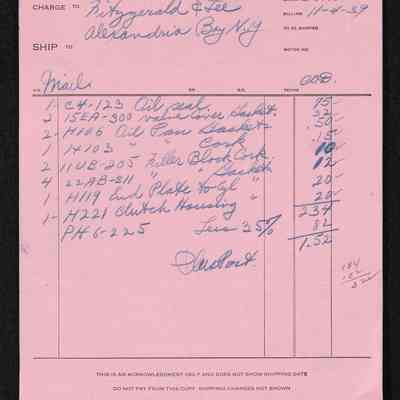 CHARGE TO: Fitzgerald & Lee
BILLING 11-4-39
Alexandria Bay N.Y.
TO BE SHIPPED
SHIP TO:
MOTOR NO.
Mail COD.
1- C4-123 Oil seal. 75
2 15EA-300 valve Cover Gasket. 32
2 H106 Oil Pan Gaskets .50
1 14103 " " Cork .15
2 11UB-205 Filler Block Cork. 10
4 22AB-811 " " Gaskets 12
1 H119 End Plate to Cyl " 20
1- H221 Clutch Housing " 20
PH 6-225 Less 35% 234
82
1.52
Plus Post.
184
.02
THIS IS AN ACKNOWLEDGMENT ONLY AND DOES NOT SHOW SHIPPING DATE
DO NOT PAY FROM THIS COPY. SHIPPING CHARGES NOT SHOWN